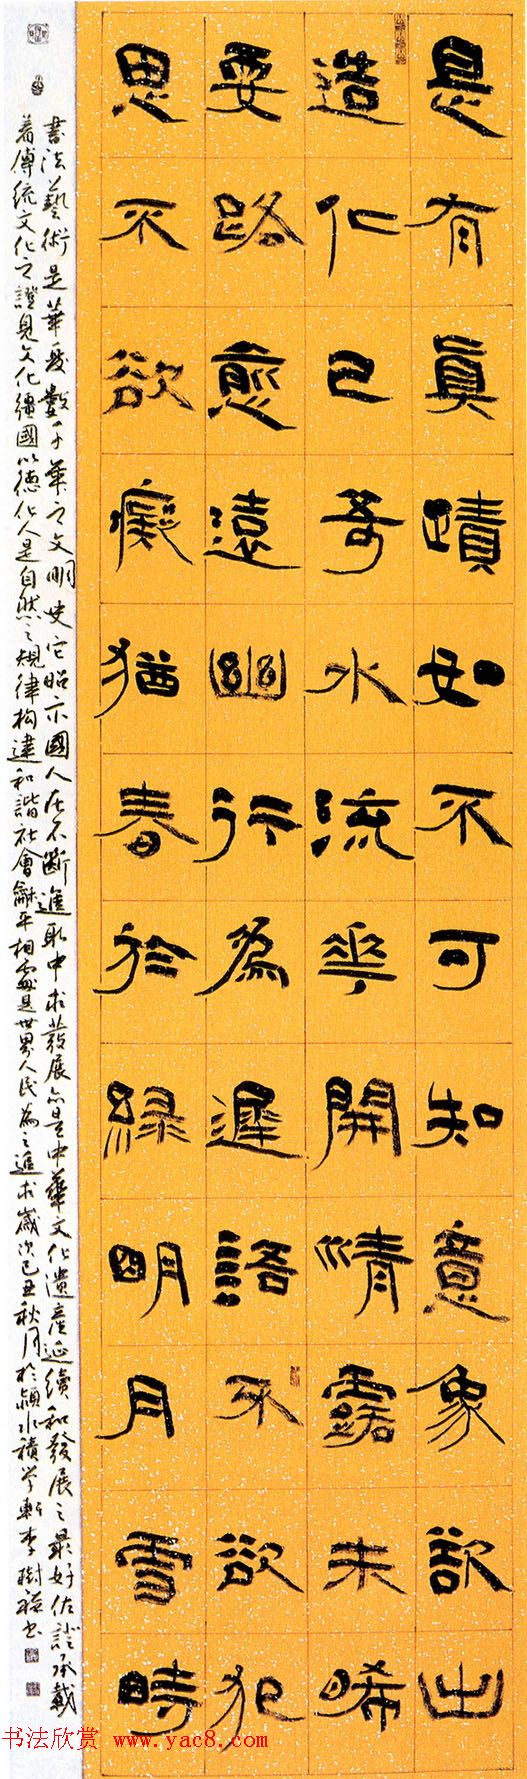 是有真蹟如不可知意象欲出
造化已奇水流花開清露未晞
要路愈遠幽行為遲語不欲犯
思不欲癡猶春於綠明月雪時
書法藝術是華夏數千年之文明史它昭示國人在不斷進取中求發展亦是中華文化遺產延續和發展之最好佐證承載
着傳統文化之證見文化彊國以德化人是自然之規律构建和諧社會龢平相處是世界人民為之追求歲次己丑秋月於潁水積學軒李樹書
书法欣赏 www.yac8.com